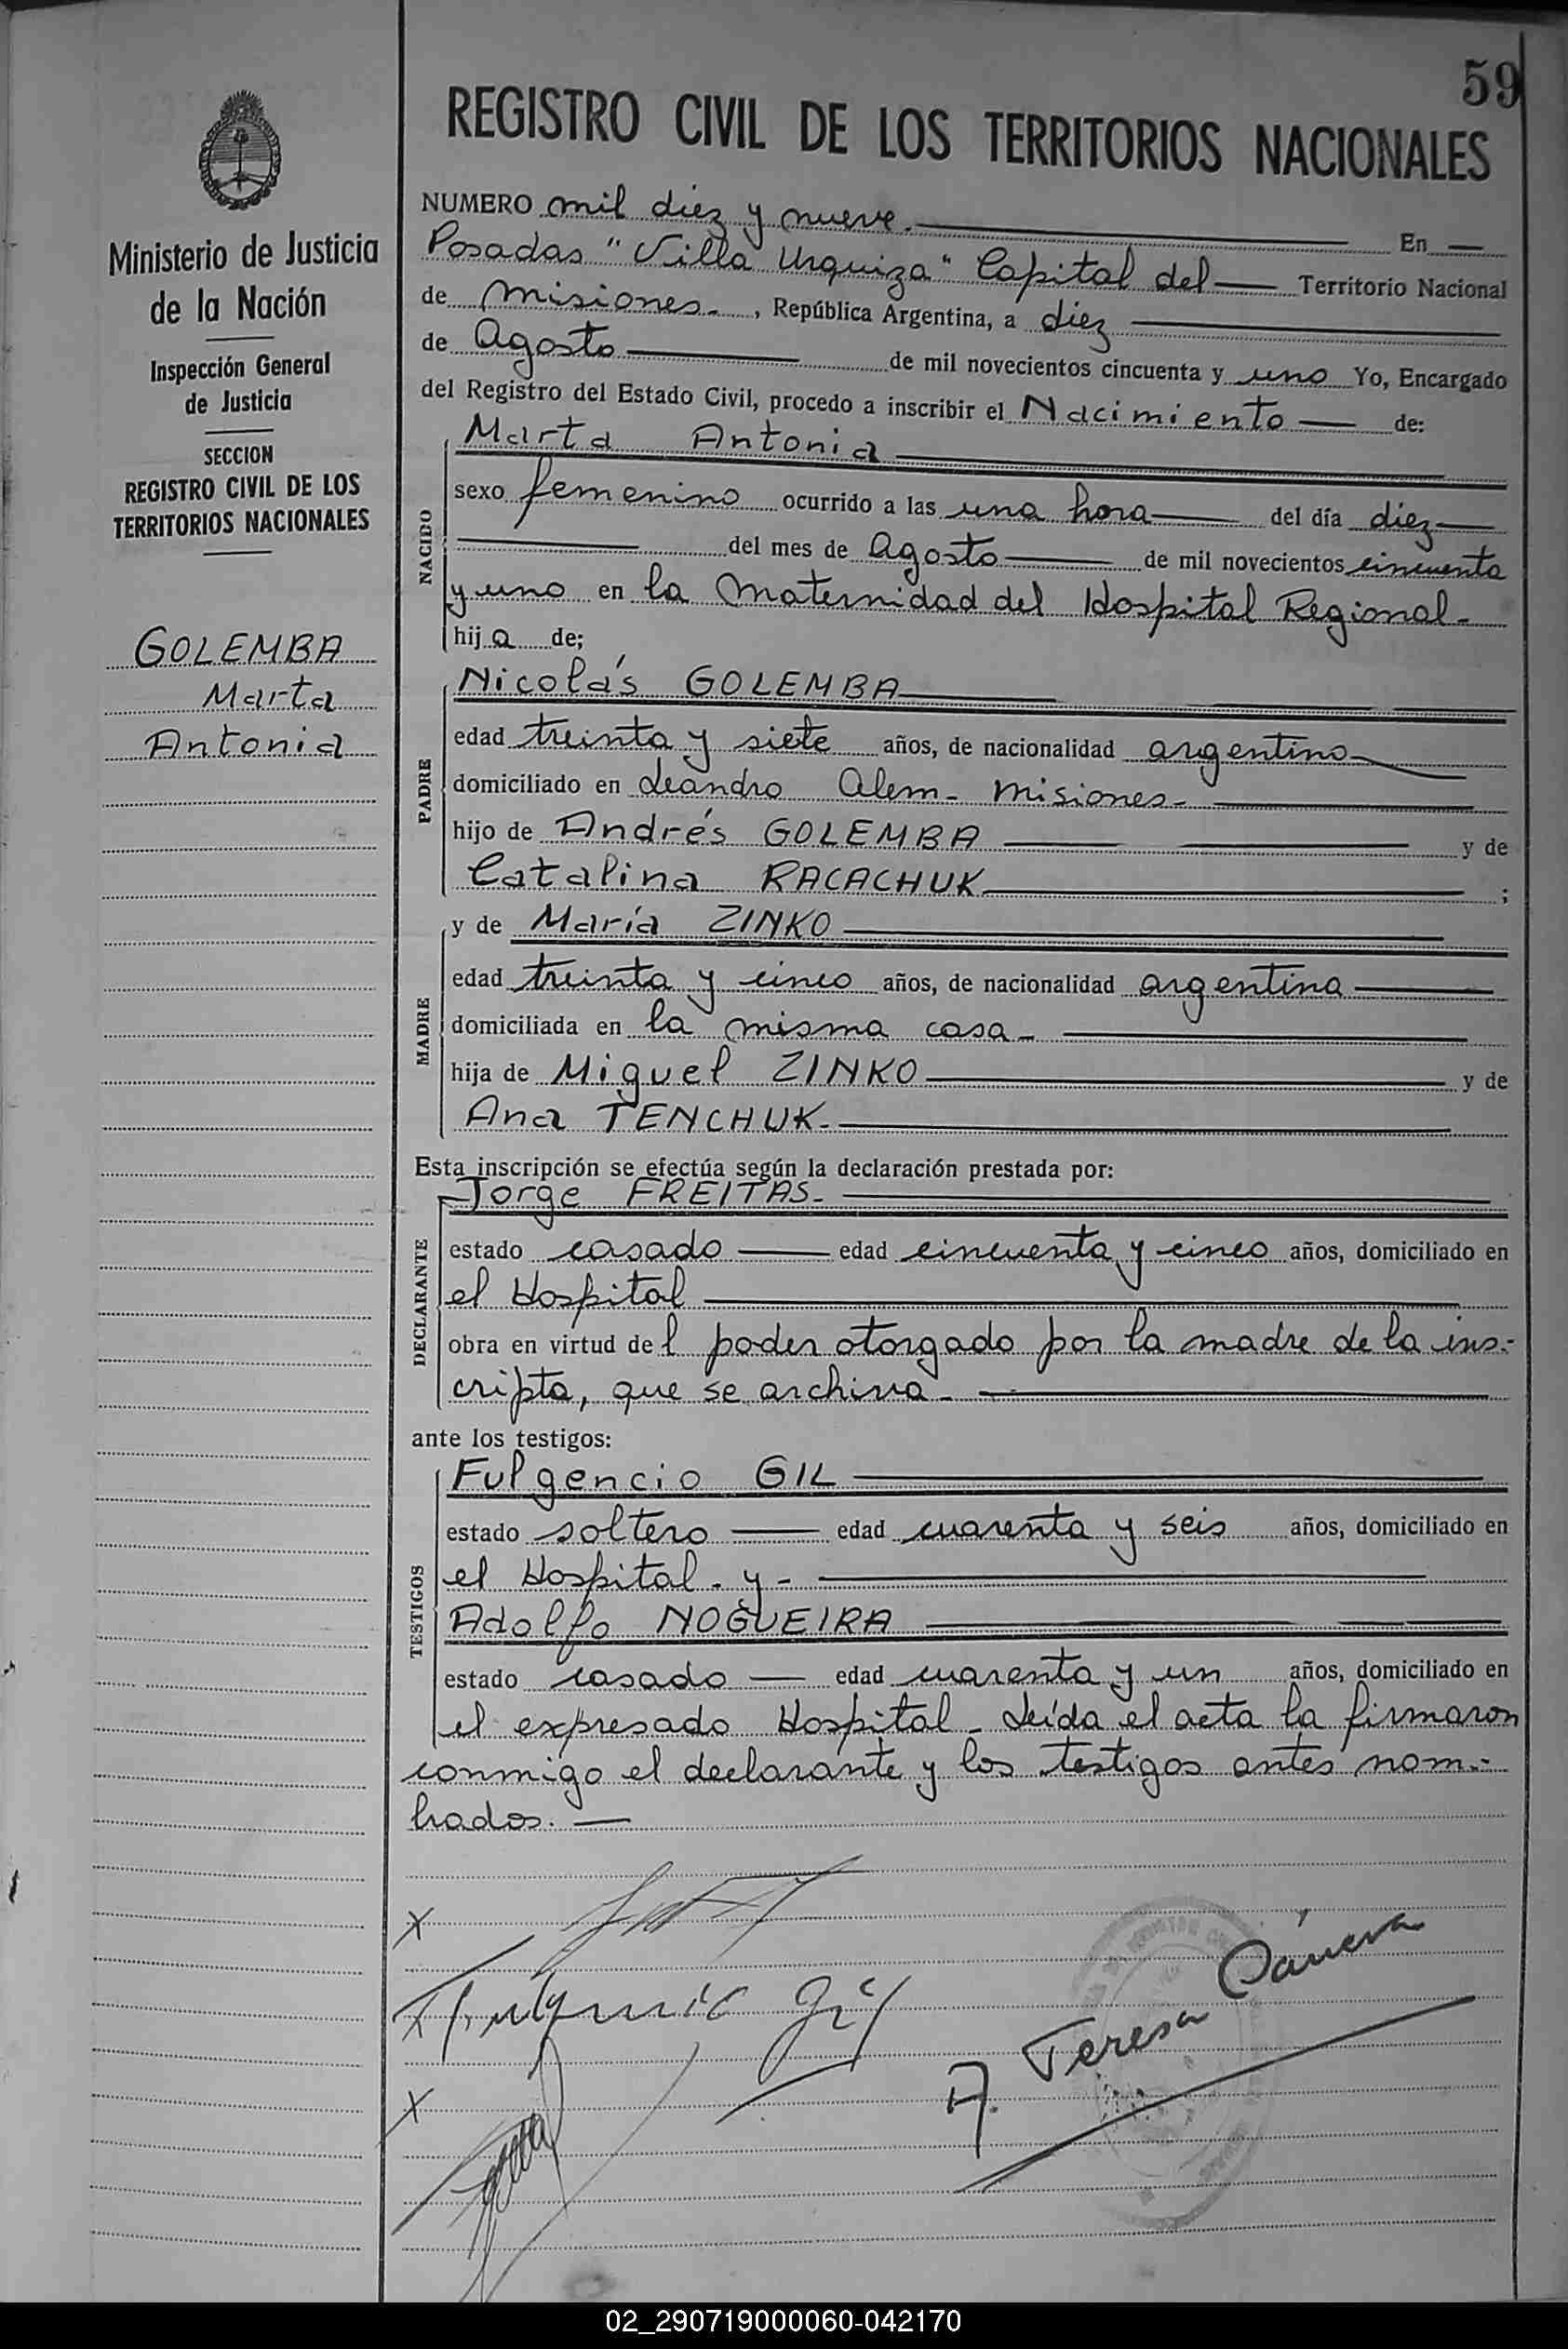 59
REGISTRO CIVIL DE LOS TERRITORIOS NACIONALES
Ministerio de Justicia
de la Nación
Inspección General
de Justicia
SECCION
REGISTRO CIVIL DE LOS
TERRITORIOS NACIONALES
GOLEMBA
Marta
Antonia
NUMERO mil diez y nueve. En
Posadas "Villa Urquiza" Capital del Territorio Nacional
de Misiones. , República Argentina, a diez
de Agosto de mil novecientos cincuenta y uno Yo, Encargado
del Registro del Estado Civil, procedo a inscribir el Nacimiento de:
NACIDO
Marta Antonia
sexo femenino ocurrido a las una hora del día diez
del mes de Agosto de mil novecientos cincuenta
y uno en la Maternidad del Hospital Regional-
hija de;
PADRE
Nicolás GOLEMBA
edad treinta y siete años, de nacionalidad argentino
domiciliado en Leandro Alem- Misiones-
hijo de Andrés GOLEMBA y de
Catalina RACACHUK ;
MADRE
y de María ZINKO
edad treinta y cinco años, de nacionalidad argentina
domiciliada en la misma casa-
hija de Miguel ZINKO y de
Ana TENCHUK-
Esta inscripción se efectúa según la declaración prestada por:
DECLARANTE
Jorge FREITAS-
estado casado edad cincuenta y cinco años, domiciliado en
el Hospital
obra en virtud del poder otorgado por la madre de la ins-
cripta, que se archiva-
ante los testigos:
TESTIGOS
Fulgencio GIL
estado soltero edad cuarenta y seis años, domiciliado en
el Hospital- y-
Adolfo NOGUEIRA
estado casado edad cuarenta y un años, domiciliado en
el expresado Hospital- Leída el acta la firmaron
conmigo el declarante y los testigos antes nom-
brados.-
Fulgencio Gil
A. Teresa Cáneva
02_290719000060-042170